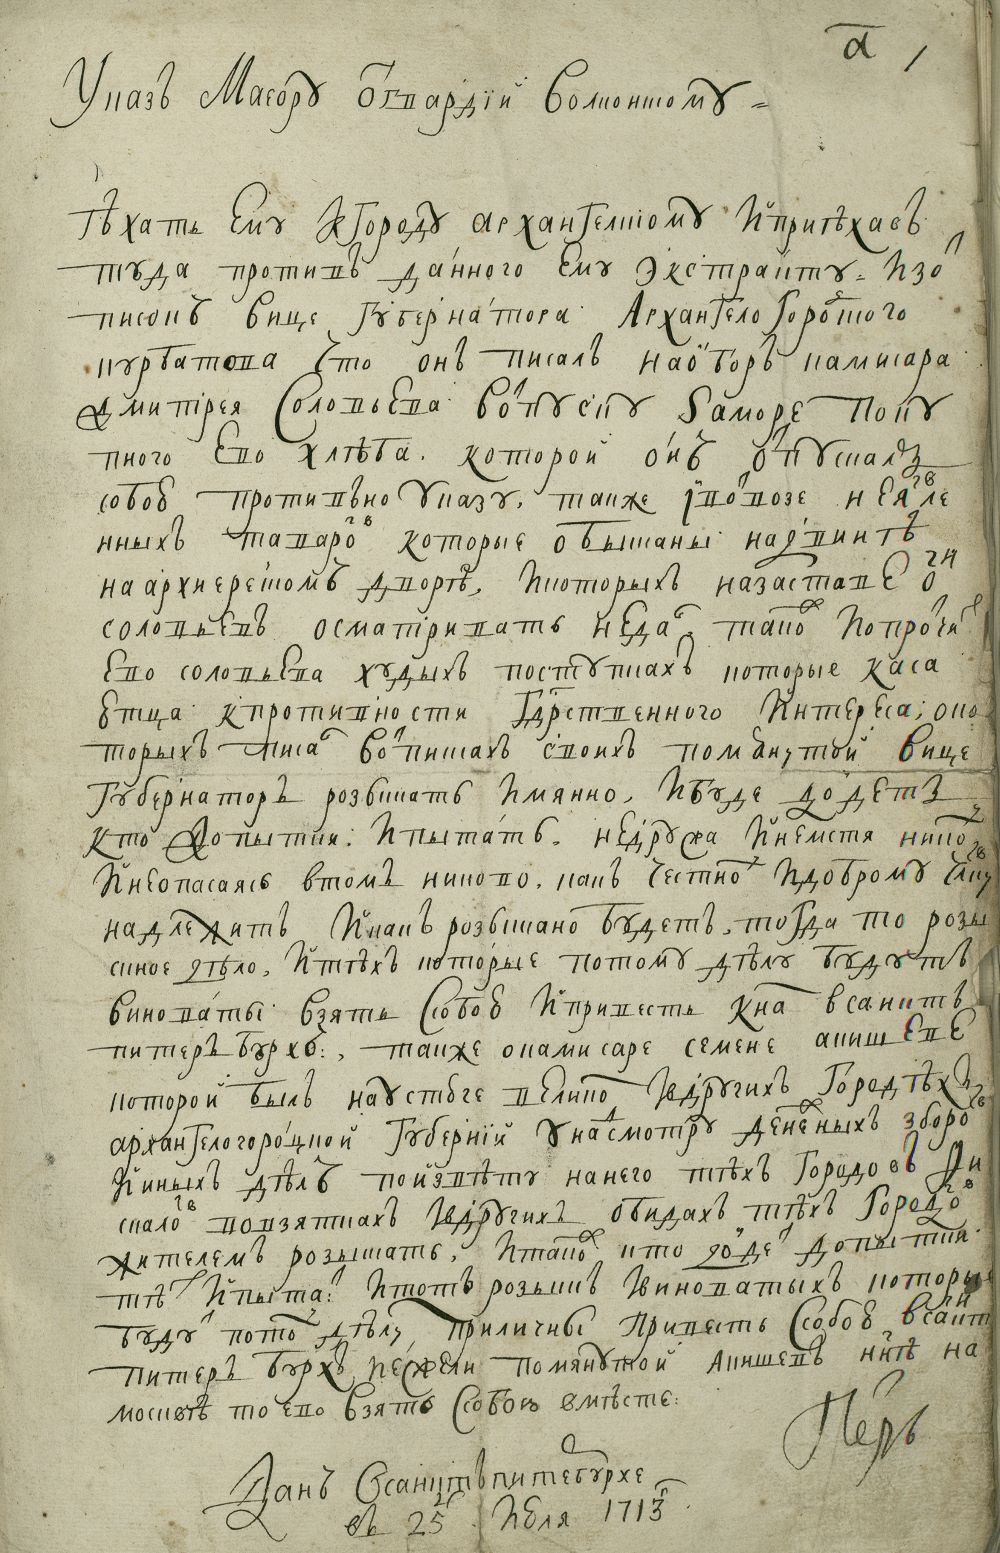 а 1
Указъ Маеору ѿ гвардiй Волконскому
ѣхать ему к городу архангелскому и приѣхавъ
туда противъ данного ему экстракту изо
писемъ вице губернатора Архангелогороцкого
курбатова что онъ писалъ на обор камисара
дмитрея Соловьева во ѿпуску за море поку
пного ево хлѣба. которой онъ ѿпускалъ
собою противно указу, также i о вывозе не явле
нныхъ товаровъ которые обысканы на
на архиерескомъ дворѣ, и которых на заставе
соловьевъ осматривать не дал, також и о прочих
ево соловьева худыхъ поступкахъ которые каса
ютца к противности Гдрственного интереса, о ко
торыхъ писал во писмахъ своихъ помянутой вице
губернаторъ розыскать имянно, и буде доидетъ
кто до пытки. и пытать. не друха и не мстя никому
и не опасаясь в томъ никово, какъ честному и доброму члку
надлежитъ и какъ розыскано будетъ, тогда то розы
скное дѣло, и тѣхъ которые по тому дѣлу будутъ
виноваты взять с собою и привесть к нам в санктъ
питеръ бурхъ, также о камисаре семене акишеве
которой былъ на устюге великом и в другихъ городѣхъ
архангелогороцкой губернiй у насмотру денежныхъ зборов
и иныхъ дѣлъ по извѣту на него тѣхъ городовъ
о взяткахъ и в другихъ обидахъ тѣхъ городов
жителемъ розыскать, и також кто доидет до пытки
тѣх и пытат. и тотъ розыскъ и виноватыхъ которые
будут по тому дѣлу приличны привесть с собою в санкт
питеръ бурхъ, ежели помянутой акишевъ ннѣ на
москвѣ то ево взять с собою вмѣсте:
Петръ
Данъ в санктъпитербурхе
въ 25 июля 1713